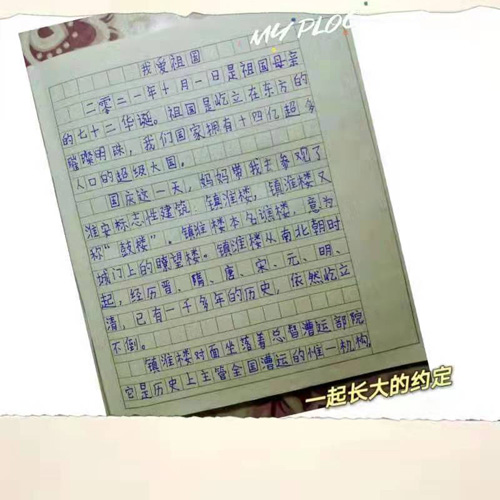 MY PLOG
我爱祖国
二零二一年十月一日是祖国母亲
的七十二华诞。祖国是屹立在东方的
璀璨明珠,我们国家拥有十四亿超多
人口的超级大国。
国庆这一天,妈妈带我去参观了
淮安标志性建筑 镇淮楼,镇淮楼又
称“鼓楼”。镇淮楼本名谯楼,意为
城门上的瞭望楼。镇淮楼从南北朝时
起,经历晋、隋、唐、宋、元、明、
清,已有一千多年的历史,依然屹立
不倒。
镇淮楼对面坐落着总督漕运部院
它是历史上主管全国漕运的惟一机构
一起长大的约定